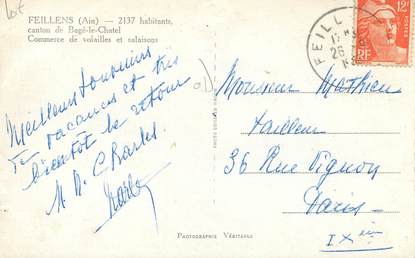 Lot
FEILLENS (Ain) — 2137 habitants,
canton de Bagé-le-Chatel
Commerce de volailles et salaisons
Meilleurs souvenirs
de vacances et très
bientôt le retour
M. Me Charles
FEILL
26
12F
RF
Monsieur Mathieu
tailleur
36 Rue Vignon
Paris
IXème
PHOTOGRAPHIE VÉRITABLE